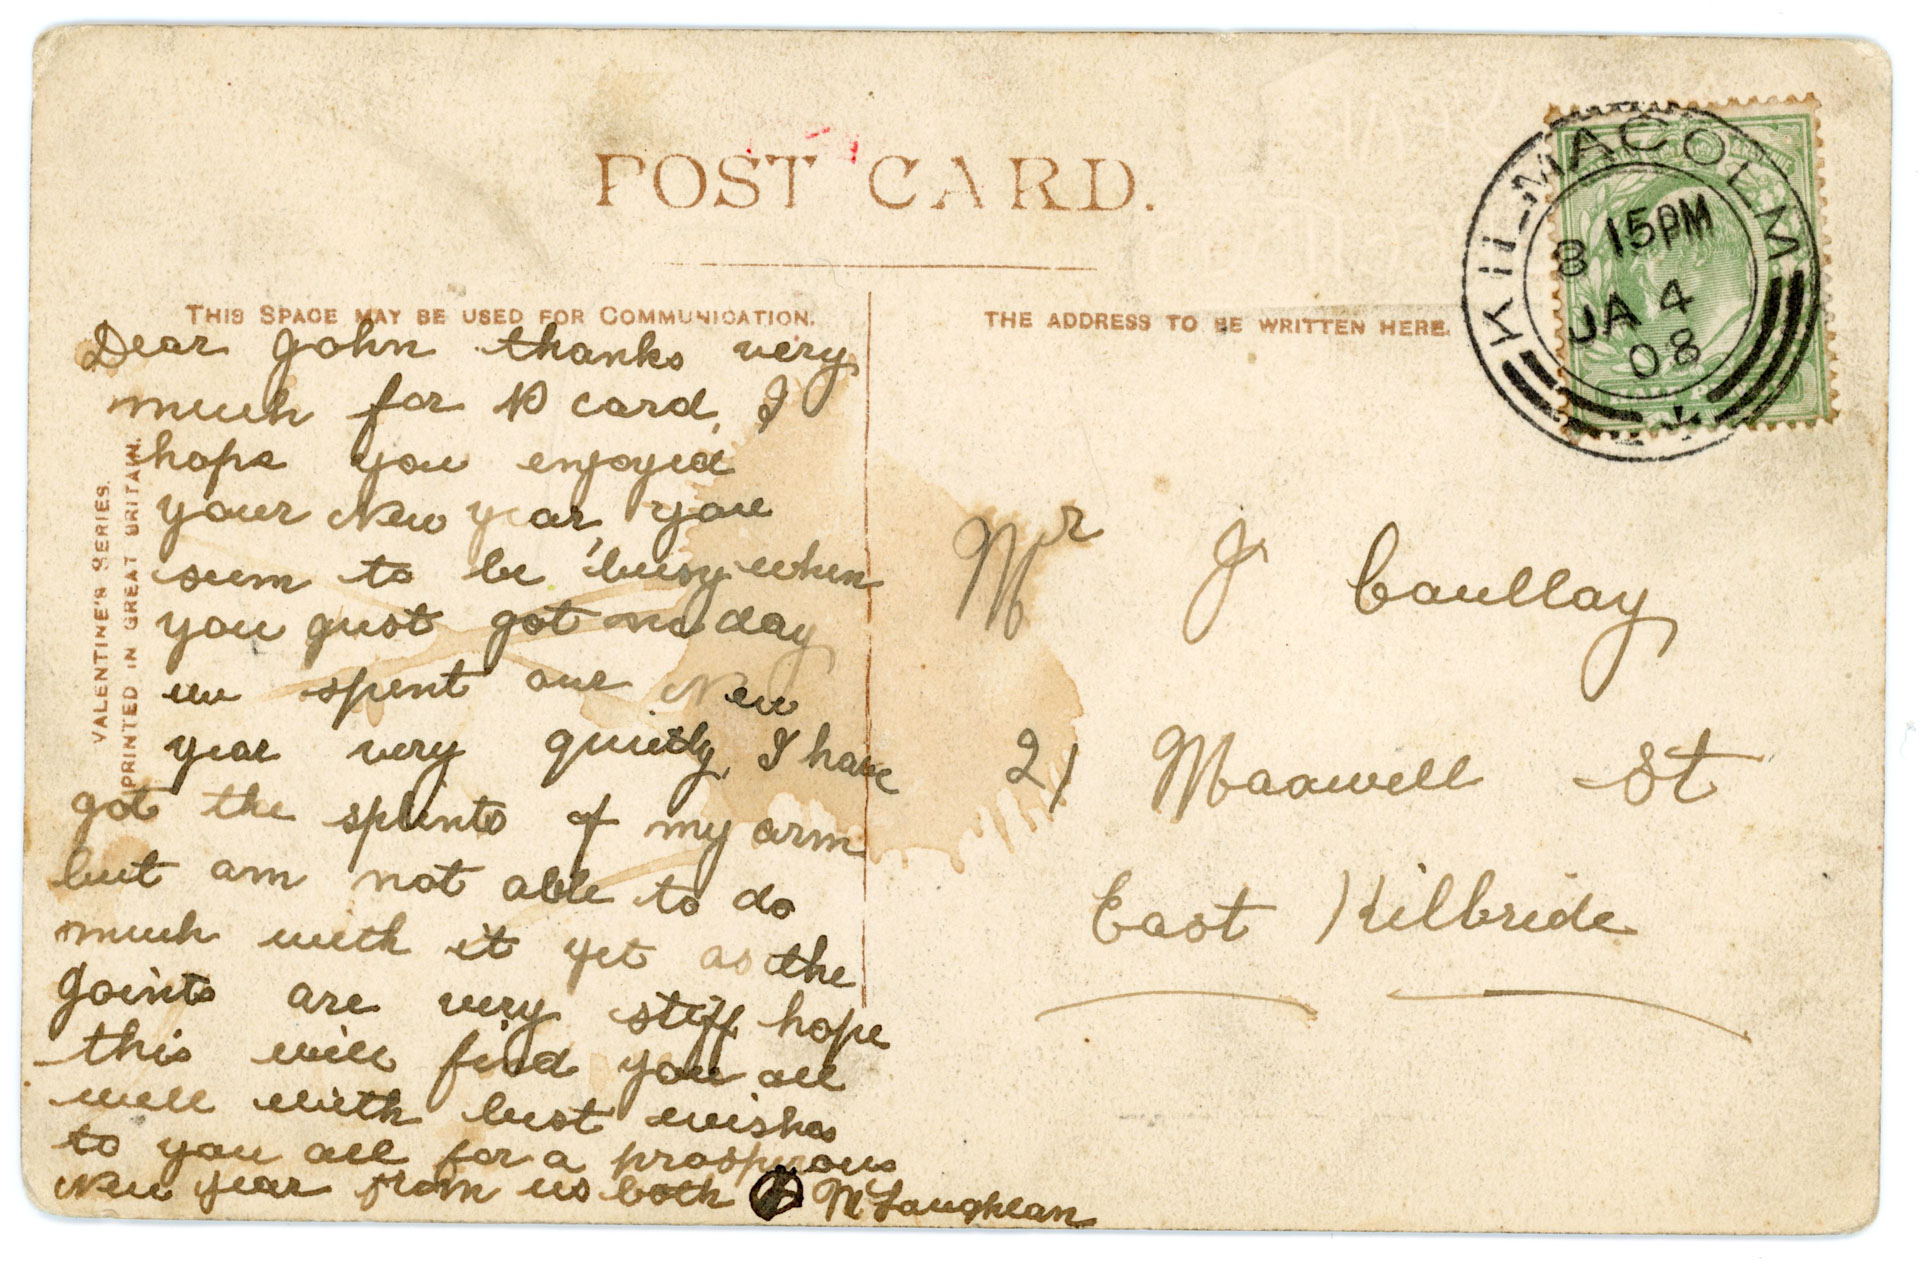 POST CARD.
THIS SPACE MAY BE USED FOR COMMUNICATION.
THE ADDRESS TO BE WRITTEN HERE.
KILMACOLM
8 15PM
JA 4
08
VALENTINE'S SERIES.
PRINTED IN GREAT BRITAIN.
Dear John thanks very
much for P card, I
hope you enjoyed
your New year, you
seem to be busy when
you just got no day
we spent our New
year very quietly, I have
got the splints of my arm
but am not able to do
much with it yet as the
joints are very stiff hope
this will find you all
well with best wishes
to you all for a prosperous
New year from us both McLaughlan
Mr J Caullay
21 Maxwell St
East Kilbride